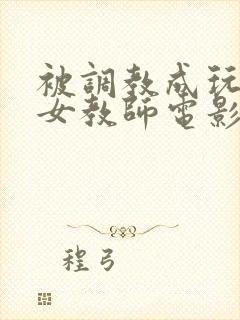 被調教成玩
女教師電影
程弓